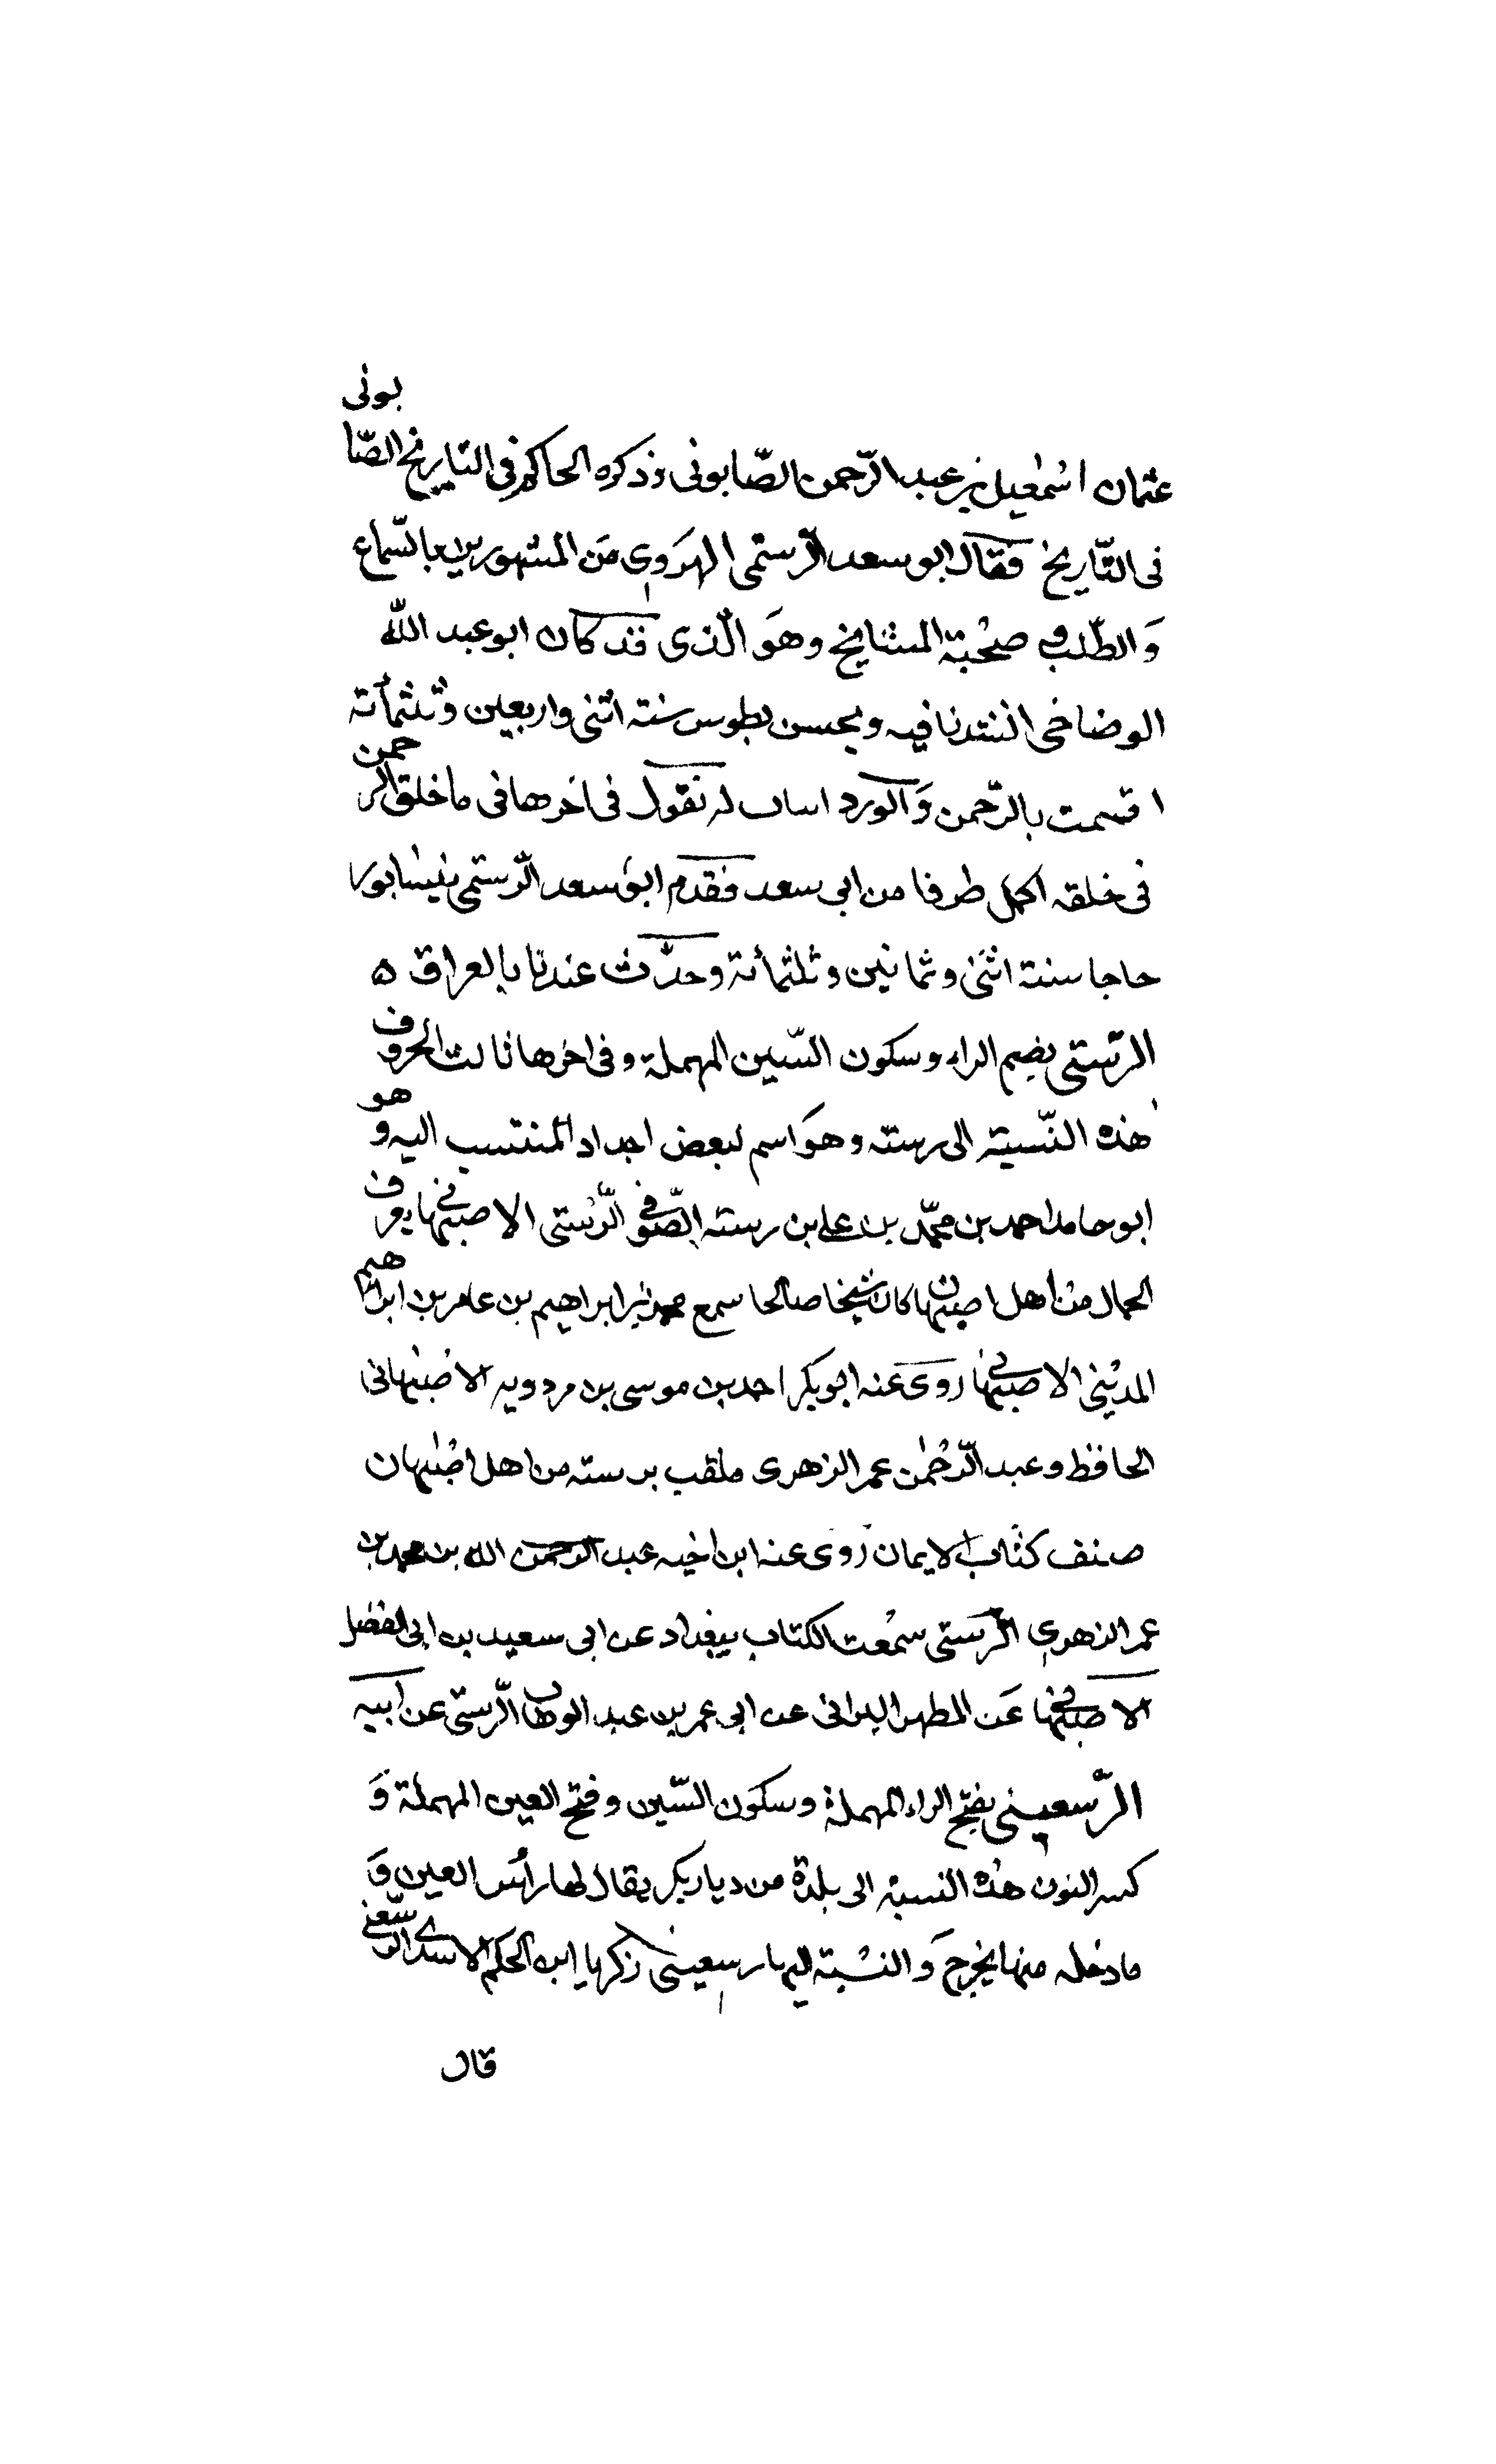 عثمان اسمعيل بن عبد الرّحمن الصّابونى وذكره الحاكم فى التاريخ الصّابونى
فى التّاريخ فقال ابو سعد الرّستمى الهروى مَن المشهورين بالسّماع
وَالطّلب و صحْبة المشايخ وهوَ الّذى قد كان ابو عبد اللّه
الوضاخى انشدنا فيه ونحسن بطوس سنة اثنى واربعين وثلثمأئة
اقسمت بالرّحمن وَالورد اساں له نقول فى اخرها فى ما خلق الرحمن
فى خلقه اكمل طرفا من ابى سعد فقدم ابو سعد الرّستمى بنيسابور
حاجا سنة اثنى وثمانين وثلثمأئة وحدّث عندنا بالعراق ه
الرّستى بضم الراء وسكون السّين المهملة وفى اخرها ثالث الحروف
هذه النّسبة الى رسته وهوَ اسم لبعض اجداد المنتسب اليه وهو
ابو حامد احمد بن محمّد بن على بن رسته الصّوفى الرّستى الاصبهانى يعرف
الحمال من أهل اصبهان كان شيخا صالحا سمع محمد بن ابراهيم بن عامر بن ابراهيم
المدينى الاصبهانى روى عنه ابو بكر احمد بن موسى بن مردويه الاصبهانى
الحافظ وعبد الرّحمن عمر الزهرى ملقب برسته من اهل اصبهان
صنف كتاب الايمان روى عنه ابن اخيه عبد الرحمن الله بن محمد بن
عمر الزهرى الرّستى سمعت الكتاب ببغداد عن ابى سعيد بن ابى الفضل
الاصبهانى عَن المطهر البرانى عن ابى عمر بن عبد الوهاب الرّستى عن ابيه
الرّسعينى بفتح الراء المهملة وسكون السّين وفتح العين المهملة وَ
كسر النون هذه النسبة الى بلدة من ديار بكر يقال لها رأس العين وَ
ما دخله منها يخرج وَالنسْبة اليها رسعينى زكريا ابن الحكم الاسدى الرّسعنى
قال